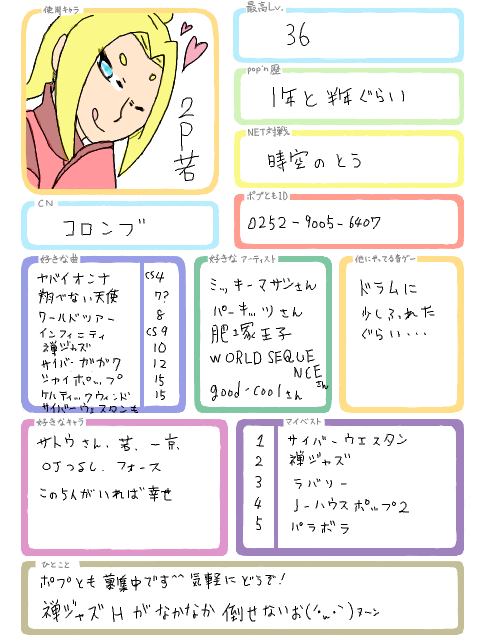 使用キャラ
2P若
最高Lv.
36
pop'n歴
1年と半年ぐらい
NET対戦
時空のとう
ポプともID
0252-9005-6407
CN
コロンブ
好きな曲
ヤバイオンナ CS4
翔べない天使 7?
ワールドツアー 8
インフィニティ CS9
禅ジャズ 10
サイバーガガク 12
ジャイポップ 15
ケルティックウィンド 15
サイバーウェスタンも
好きなアーティスト
ミッキーマサシさん
パーキッツさん
肥塚王子
WORLD SEQUE
NCEさん
good-coolさん
他にやってる音ゲー
ドラムに
少しふれた
ぐらい・・・
好きなキャラ
サトウさん、若、一京、
OJっSし、フォース
この5人がいれば幸せ
マイベスト
1 サイバーウエスタン
2 禅ジャズ
3 ラバソー
4 J-ハウスポップ2
5 パラボラ
ひとこと
ポプとも募集中です^^気軽にどうぞ!
禅ジャズHがなかなか倒せないお(´・ω・`)ヌ〜ン